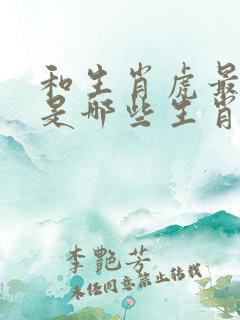 和生肖虎最
是哪些生肖
李艷芳
未经同意禁止转载